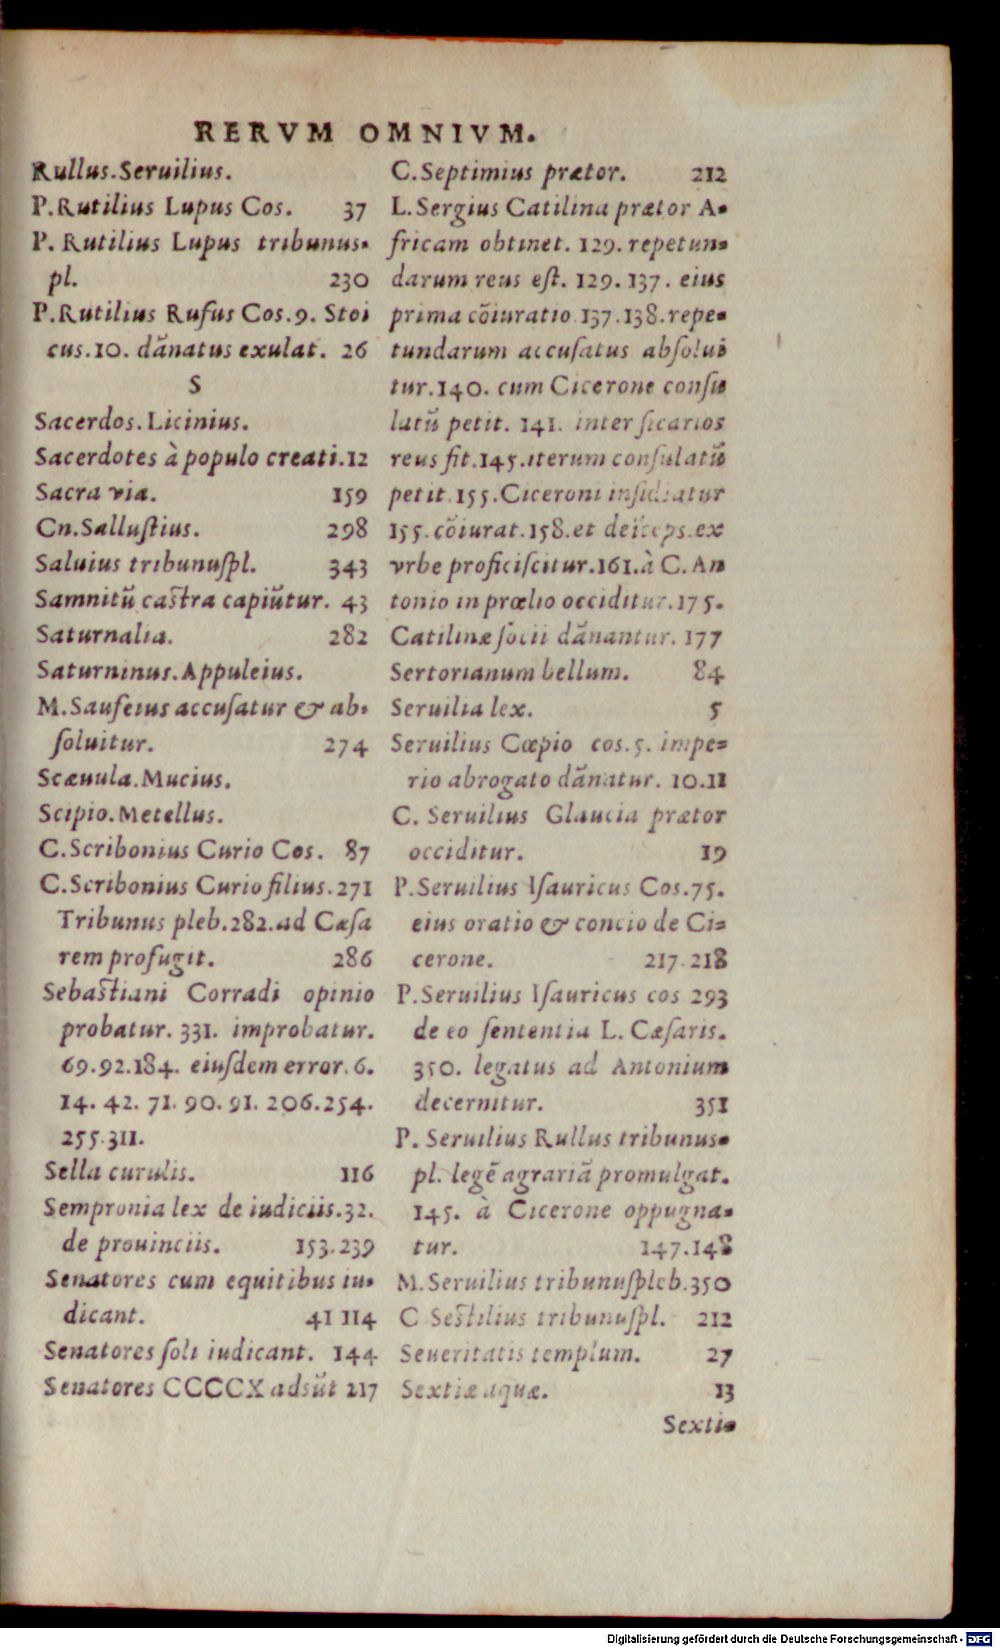 RERVM OMNIVM.
Rullus.Seruilius.
P.Rutilius Lupus Cos. 37
P. Rutilius Lupus tribunus-
pl. 230
P.Rutilius Rufus Cos.9. Stoi
cus.10. dānatus exulat. 26
S
Sacerdos.Licinius.
Sacerdotes à populo creati.12
Sacra via. 159
Cn.Sallustius. 298
Saluius tribunuspl. 343
Samnitū castra capiūtur. 43
Saturnalia. 282
Saturninus.Appuleius.
M.Saufeius accusatur & ab-
soluitur. 274
Scæuula.Mucius.
Scipio.Metellus.
C.Scribonius Curio Cos. 87
C.Scribonius Curio filius.271
Tribunus pleb.282.ad Cæsa
rem profugit. 286
Sebastiani Corradi opinio
probatur. 331. improbatur.
69.92.184. eiusdem error.6.
14. 42. 71. 90. 91. 206.254.
255.311.
Sella curulis. 116
Sempronia lex de iudiciis.32.
de prouinciis. 153.239
Senatores cum equitibus iu-
dicant. 41 114
Senatores soli iudicant. 144
Senatores CCCCX adsūt 217
C.Septimius prætor. 212
L.Sergius Catilina prætor A-
fricam obtinet. 129. repetun-
darum reus est. 129. 137. eius
prima cōiuratio.137.138.repe-
tundarum accusatus absolui
tur.140. cum Cicerone consu
latū petit. 141. inter sicarios
reus fit.145.iterum consulatū
petit.155.Ciceroni insidiatur
155.cōiurat.158.et deīceps.ex
vrbe proficiscitur.161.à C.An
tonio in prœlio occiditur.175.
Catilinæ socii dānantur. 177
Sertorianum bellum. 84
Seruilia lex. 5
Seruilius Cœpio cos.5. impe-
rio abrogato dānatur. 10.11
C. Seruilius Glaucia prætor
occiditur. 19
P.Seruilius Isauricus Cos.75.
eius oratio & concio de Ci-
cerone. 217.218
P.Seruilius Isauricus cos 293
de eo sententia L. Cæsaris.
350. legatus ad Antonium
decernitur. 351
P. Seruilius Rullus tribunus-
pl. legē agrariā promulgat.
145. à Cicerone oppugna-
tur. 147.148
M.Seruilius tribunuspleb.350
C Sestilius tribunuspl. 212
Seueritatis templum. 27
Sextiæ aquæ. 13
Sexti-
Digitalisierung gefördert durch die Deutsche Forschungsgemeinschaft - DFG